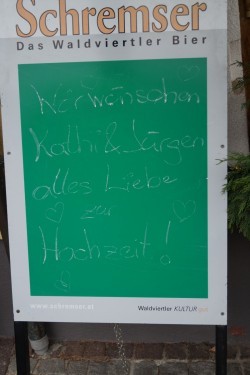 Schremser
Das Waldviertler Bier
Wir wünschen
Kathi & Jürgen
alles Liebe
zur
Hochzeit!
www.schremser.at
Waldviertler KULTUR